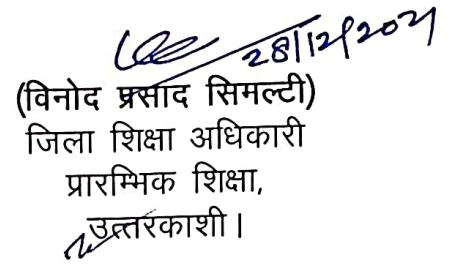 28/12/2021
(विनोद प्रसाद सिमल्टी)
जिला शिक्षा अधिकारी
प्रारम्भिक शिक्षा,
उत्तरकाशी।